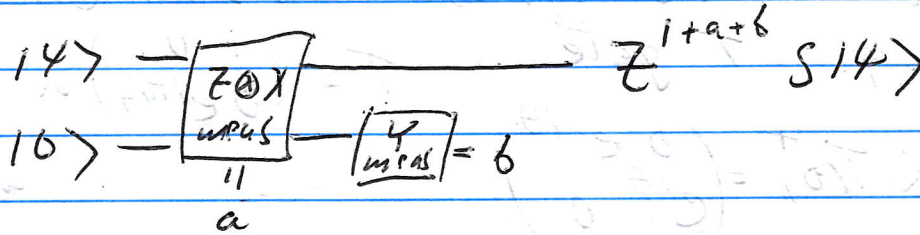 |ψ> Z⊗X meas Z^{1+a+b} S|ψ>
|0> Y meas = b
= a